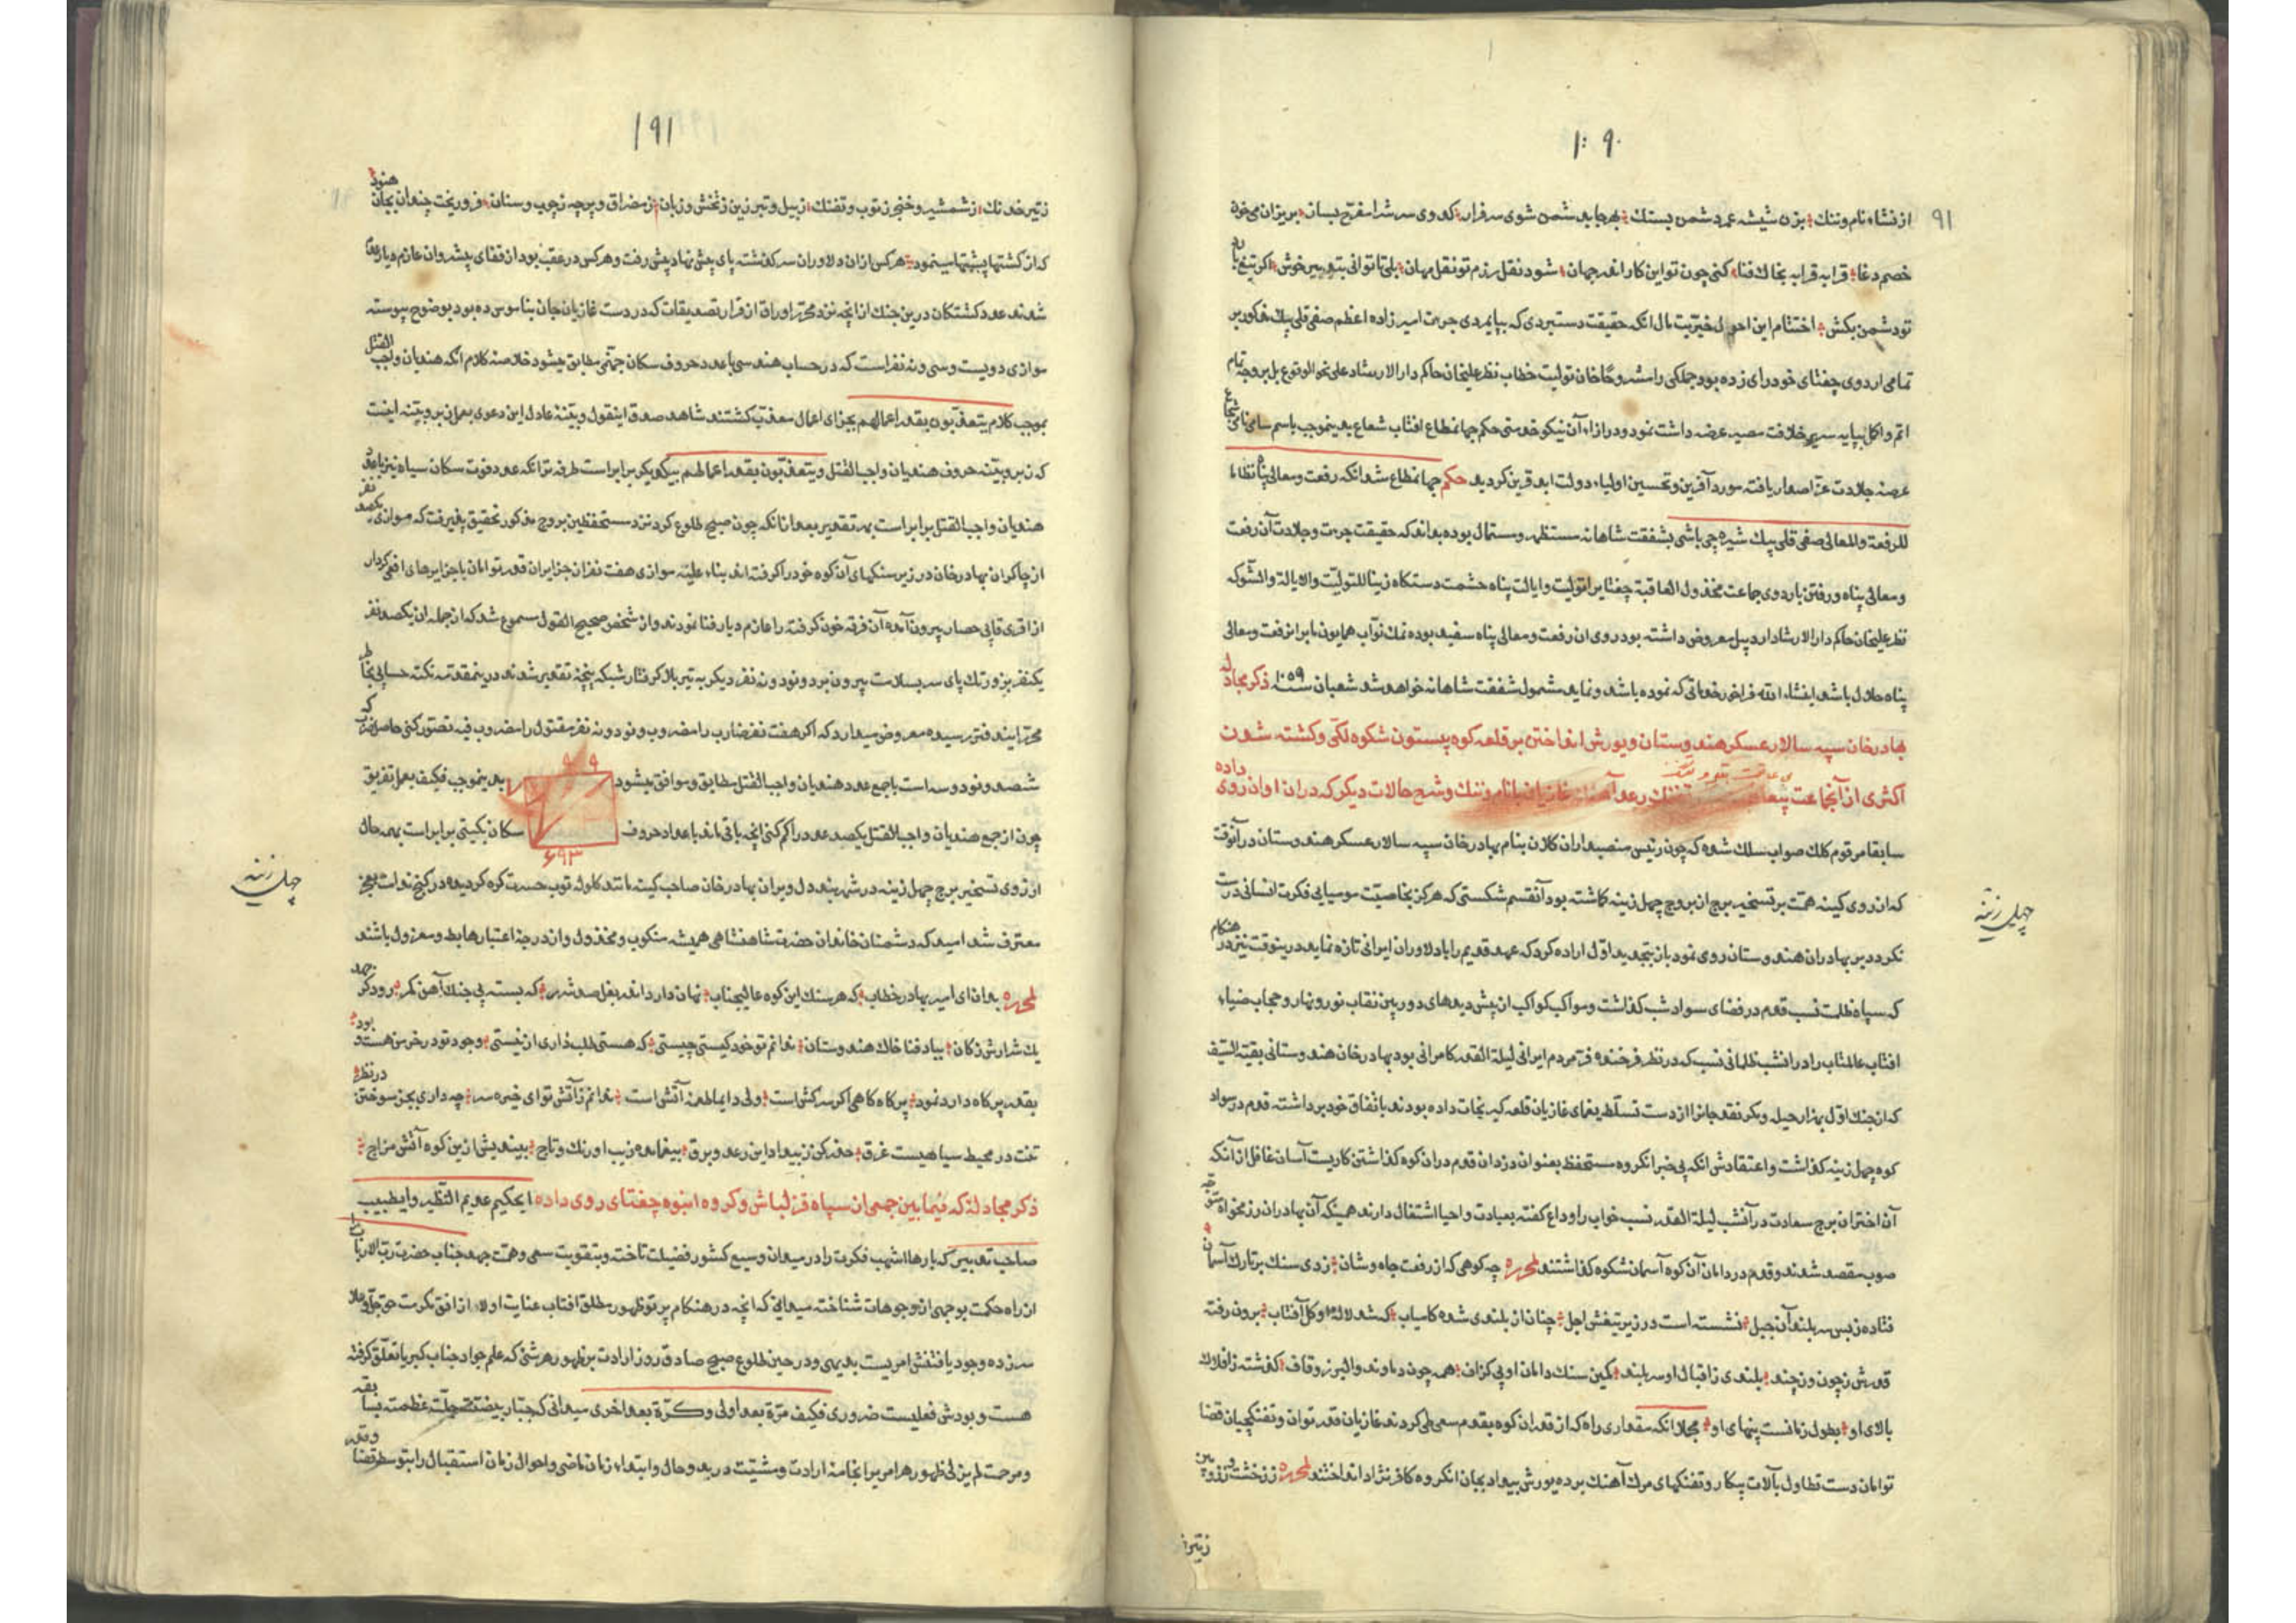 ۱۹۰
۹۱
از نشاء نام و ننک بزن شیشه عمر دشمن بسنک بهر جا بدشمن شوی سرفراز کدوی سرش را مفرح بساز بریزان می خون
خصم دغا قرابه قرابه بخاك فنا کنی چون تو این کار اندر جهان شود نقل رزم تو نقل مهان بلی تا توانی بتدبیر خوش اکر تیغ یابد
تو دشمن بکش اختتام این احوال خیریت مال انکه حقیقت دستبردی که بپایمردی جرءت امیرزاده اعظم صفی قلی بیك مذکور بر
تمامی اردوی جغتای خودرای زده بود جملکی را مشروحا خان تولیت خطاب نظر علیخان حاکم دار الارشاد علی نحو الوقوع بل بر وجه تمام
اتم و اکمل بپایه سریر خلافت مصیر عرضه داشت نمود و در ازاء آن نیکو خدمتی حکم جهانمطاع افتاب شعاع بدینموجب باسم سامی نامی
عرصه جلادت عز اصدار یافته مورد آفرین و تحسین اولیاء دولت ابد قرین کردید حکم جهانمطاع شد انکه رفعت و معالی پناه نظاما
للرفعة والمعالی صفی قلی بیك شیره چی باشی بشفقت شاهانه مستظهر و مستمال بوده بداند که حقیقت جرءت و جلادت آن رفعت
و معالی پناه و رفتن باردوی جماعت مخذول العاقبة جغتای را تولیت و ایالت پناه حشمت دستکاه زینا للتولیت والایالة والشوکه
نظر علیخان حاکم دار الارشاد اردبیل معروض داشته بود روی ان رفعت و معالی پناه سفید بوده نمك نواب همایون ما بر ان رفعت و معالی
پناه حلال باشد انشاء الله فراخور خدماتی که نموده باشد و نماید مشمول شفقت شاهانه خواهد شد شعبان سنه ۱۰۵۹ ذکر مجادله
بهادرخان سپه سالار عسکر هندوستان و یورش انداختن بر قلعه کوه بیستون شکوه لکی و کشته شدن
اکثری از آنجاعت و شرح حالات دیکر که دران اوان روی داده
سابقا مرقوم کلك صواب سلك شده که چون رئیس منصبداران کلان بنام بهادرخان سپه سالار عسکر هندوستان در آنوقت
که از روی کینه همت بر تسخیر برج از بروج چهل زینه کاشته بود آنقسم شکستی که هرکز بخاصیت مومیایی فکرت انسانی درست
نکردد بر بهادران هندوستان روی نمود باز بتجدید اول اراده کرد که عهد قدیم را با دلاوران ایرانی تازه نماید درینوقت نیز در هنکام
که سپاه ظلمت نسب قدم در فضای سواد شب کذاشت و مواکب کواکب از پیش دیدهای دوربین نقاب نور و نهار و حجاب ضیاء
افتاب عالمتاب را در انشب ظلمانی نسب که در نظر فرخنده فر مردم ایرانی لیلة القدر کامرانی بود بهادرخان هندوستانی بقیة السیف
که از جنك اول بهزار حیله و مکر نقد جانرا از دست تسلط یغمای غازیان قلعه کیر نجات داده بودند باتفاق خود بر داشته قدم در سواد
کوه چهل زینه کذاشت و اعتقادش انکه بی خبر انکروه مستحفظ بعنوان دزدان قدم دران کوه کذاشتن کاریست آسان غافل از آنکه
آن اختران برج سعادت در آنشب لیلة القدر نسب خواب را وداع کفته بعبادت و احیا اشتغال دارند همینکه آن بهادران رزمخواه متوجه
صوب مقصد شدند و قدم در دامان آن کوه آسمان شکوه کذاشتند لمحرره چه کوهی که از رفعت جاه و شان زدی سنك بر تارك آسمان
فتاده ز بس سربلند آن جبل نشسته است در زیر تیغش اجل چنان از بلندی شده کامیاب که شد لاله او کل آفتاب برون رفته
قدرش ز چون و ز چند بلندی ز اقبال او سربلند کمین سنك دامان او بی کزاف همه چون دماوند و البرز و قاف کذشته ز افلاك
بالای او بطول زمانست پهنای او مجملا انکه مقداری راه که از قد ان کوه بقدم سعی طی کردند غازیان قدر توان و تفنکچیان قضا
توامان دست تطاول بآلات پیکار و تفنکهای مرك آهنك برده یورش بیداد بجان انکروه کافر نژاد انداختند لمحرره
زتیر
چهل زینه
۱۹۱
ز تیر خدنك ز شمشیر و خنجر ز توپ و تفنك ز بیل و تبرزین ز تخش و زبان ز مضراق و برچه ز چوب و سنان فرو ریخت چندان بجان هنود
که از کشتها پشتها مینمود هر کس ازان دلاوران سرکذشته پای پیش نهاد پیش رفت و هر کس در عقب بود از قفای پیشروان عازم دیار عدم
شدند عدد کشتکان درین جنك از انچه نزد محرر اوراق از قرار تصدیقات که در دست غازیان جان بناموس ده بود بوضوح پیوسته
موازی دویست و سی و نه نفر است که در حساب هندسی با عدد حروف سکان جهنمی مطابق میشود خلاصه کلام انکه هندیان واجب القتل
بموجب کلام یتعذبون بقدر اعمالهم بجزای اعمال معذب کشتند شاهد صدق اینقول و بینهٔ عادل این دعوی بعد از زبر و بینه اینست
که زبر و بینه حروف هندیان واجب القتل و یتعذبون بقدر اعمالهم بیکدیکر برابر است طرفه تر انکه عدد فوت سکان سیاه نیز با عدد
هندیان واجب القتل برابر است بهر تقدیر بعد از انکه چون صبح طلوع کرد نزد مستحفظین بروج مذکور تحقیق پذیرفت که موازی یکصد نفر
از چاکران بهادرخان در زیر سنکهای آن کوه خود را کرفته اند بناء علیه موازی هفت نفر از جزایران قدر توامان با جزایرهای افعی کردار
از اقری قاپی حصار بیرون آمده آن فرقه خون کرفته را عازم دیار فنا نمودند و از شخص صحیح القول مسموع شد که از جمله ان یکصد نفر
یکنفر بزور تك پای سر بسلامت بیرون برد و نود و نه نفر دیکر به تیر بلا کرفتار شبکه پنجهٔ تقدیر شدند درینمقدمه نکته حسابی بخاطر
محرر ایندفتر رسیده معروض میدارد که اکر هفت نفر ضارب را مضروب و نود و نه نفر مقتول را مضروب فیه تصور کنی حاصل ضرب که
ششصد و نود و سه است با جمع عدد هندیان واجب القتل مطابق و موافق میشود بدینموجب فکیف بعد از تفریق
۹ ۹
۷
۶۹۳
چون از جمع هندیان واجب القتل یکصد عدد را کم کنی انچه باقی ماند با عداد حروف سکان بکیتی برابر است بهر حال
آرزوی تسخیر برج چهل زینه در شهربند دل ویران بهادرخان صاحب کینه مانند کلوله توپ حسرت کره کردیده در کنج ندامت بعجز
معترف شد امید که دشمنان خاندان حضرت شاهنشاهی همیشه منکوب و مخذول و از درجهٔ اعتبار هابط و معزول باشند
لمحرره بدان ای امیر بهادر خطاب که هر سنك این کوه عالیجناب نهان دارد اندر بغل صد شرر که بسته پی جنك آهن کمر
یك شرارش ز کان بباد فنا خاك هندوستان ندانم تو خود کیستی چیستی که هستی طلب داری از نیستی وجود تو در خرمن هست و بود
بقدر پر کاه دارد نمود پر کاه کاهی اکر سرکش است ولی دایما طعمهٔ آتش است ندانم ز آتش تو ای خیره سر چه داری بجز سوختن در نظر
تنت در محیط سیاهیست غرق حذر کن ز بیداد این رعد و برق بیغما مده زیب اورنك و تاج بیندیش ازین کوه آتش مزاج
ذکر مجادلهٔ که فیما بین جمعی از سپاه قزلباش و کروه انبوه جغتای روی داده ایحکیم عدیم النظیر و ایطبیب
صاحب تدبیر که بارها اشهب فکرت را در میدان وسیع کشور فضیلت تاخته و بتقویت سعی و همت جهد جناب حضرت رب الارباب
از راه حکمت بوجهی از وجوهات شناخته میدانی که انچه در هنکام پرتو ظهور مطلق افتاب عنایت اولا از افق مکرمت حق جل و علا
سر زده وجود یافتنش امریست بدیهی و در حین طلوع صبح صادق روز ارادت بر ظهور هر شئ که علم جواد جناب کبریا تعلق کرفته
هست و بودش فعلیست ضروری فکیف مرة بعد اولی و کرة بعد اخری میدانی که جناب جلت عظمته
و مرحمت لم یزلی ظهور هر امر مرا بخامهٔ ارادت و مشیت در بدو حال و ابتداء زمان ماضی و احوال زمان استقبال را بتوسط قضا و قدر
چهل زینه